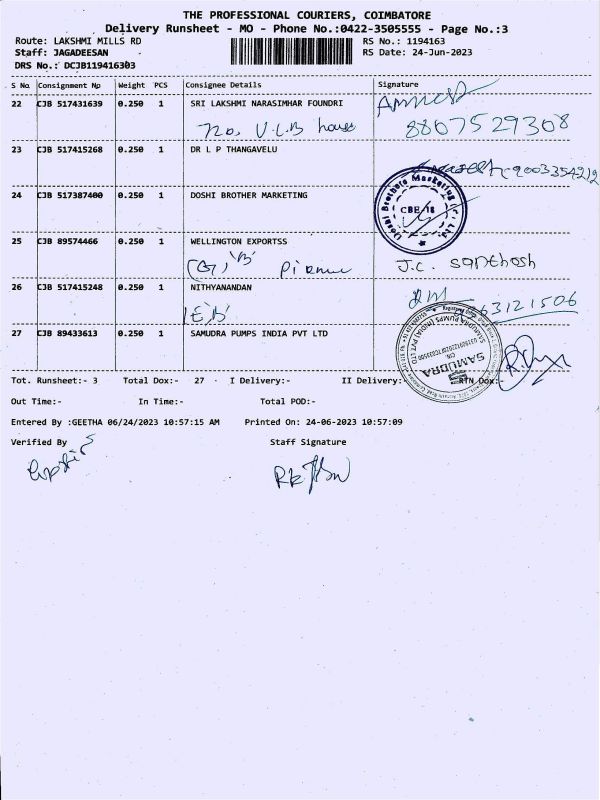 THE PROFESSIONAL COURIERS, COIMBATORE
Delivery Runsheet - MO - Phone No.:0422-3505555 - Page No.:3
Route: LAKSHMI MILLS RD RS No.: 1194163
Staff: JAGADEESAN RS Date: 24-Jun-2023
DRS No.: DCJB119416303
S No Consignment Np Weight PCS Consignee Details Signature
22 CJB 517431639 0.250 1 SRI LAKSHMI NARASIMHAR FOUNDRI
No, V.L.B house 8807529308
23 CJB 517415268 0.250 1 DR L P THANGAVELU
9003354212
24 CJB 517387400 0.250 1 DOSHI BROTHER MARKETING
Doshi Brothers Marketing (P) Ltd.
CBE-18
25 CJB 89574466 0.250 1 WELLINGTON EXPORTSS
J.C. santhosh
26 CJB 517415248 0.250 1 NITHYANANDAN
'EB' 63121506
27 CJB 89433613 0.250 1 SAMUDRA PUMPS INDIA PVT LTD
SAMUDRA PUMPS (INDIA) PVT LTD
SAMUDRA
Tot. Runsheet:- 3 Total Dox:- 27 I Delivery:- II Delivery:- RTN Dox:-
Out Time:- In Time:- Total POD:-
Entered By :GEETHA 06/24/2023 10:57:15 AM Printed On: 24-06-2023 10:57:09
Verified By Staff Signature